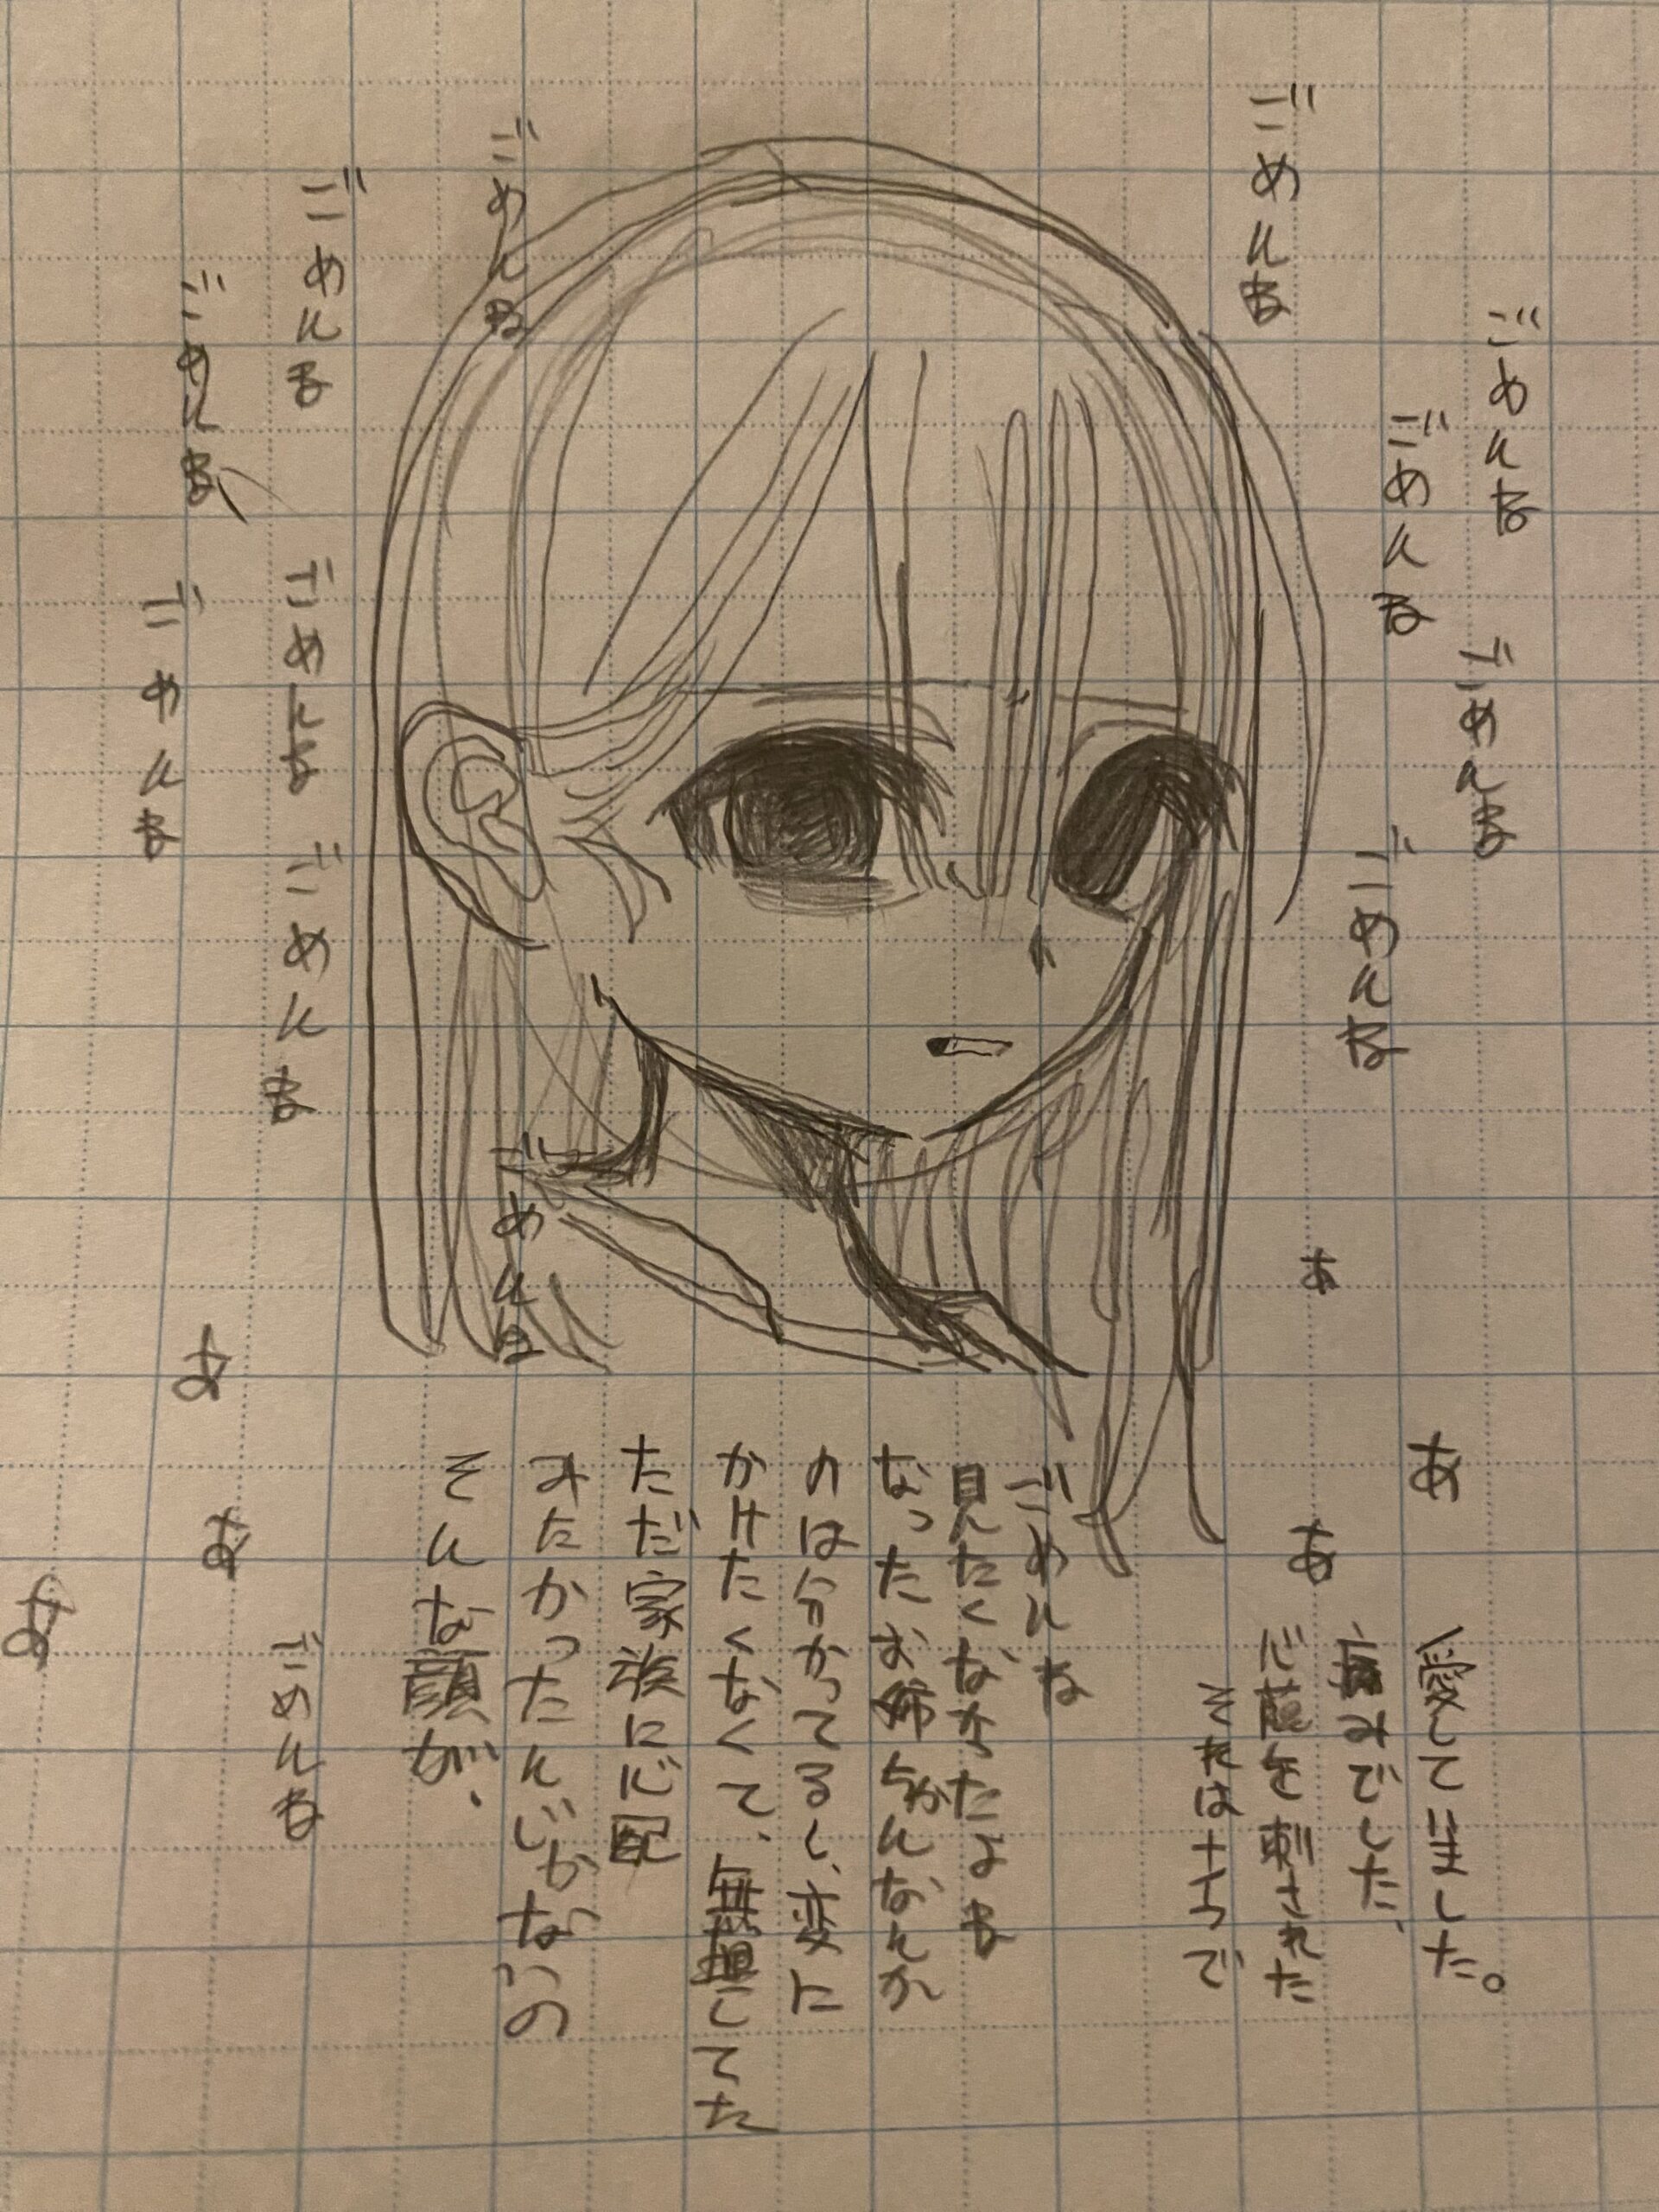 ごめんな
ごめんな
ごめんな
ごめんな
ごめんな
ごめんな
ごめんな
ごめんな
ごめんな
ごめんな
ごめんな
ごめんな
あ
あ
あ
愛していました。
痛みでした、
心臓を刺された
それは十六で
ごめんな
見たくなかったよな
なったお姉ちゃんなんか
のは分かってるし、変に
かけたくなくて、無理してた
ただ家族に心配
みたかったんじゃないの
そんな顔が、
ごめんな
あ
あ
あ